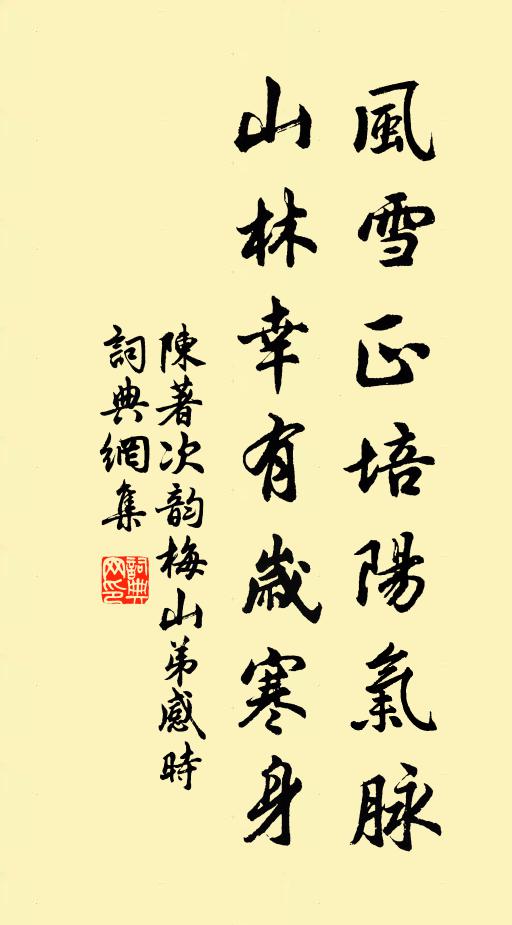 風雪正培陽氣脉
山林幸有歲寒身
陳著次韵梅山弟感時
詞典網集
詞典
网印